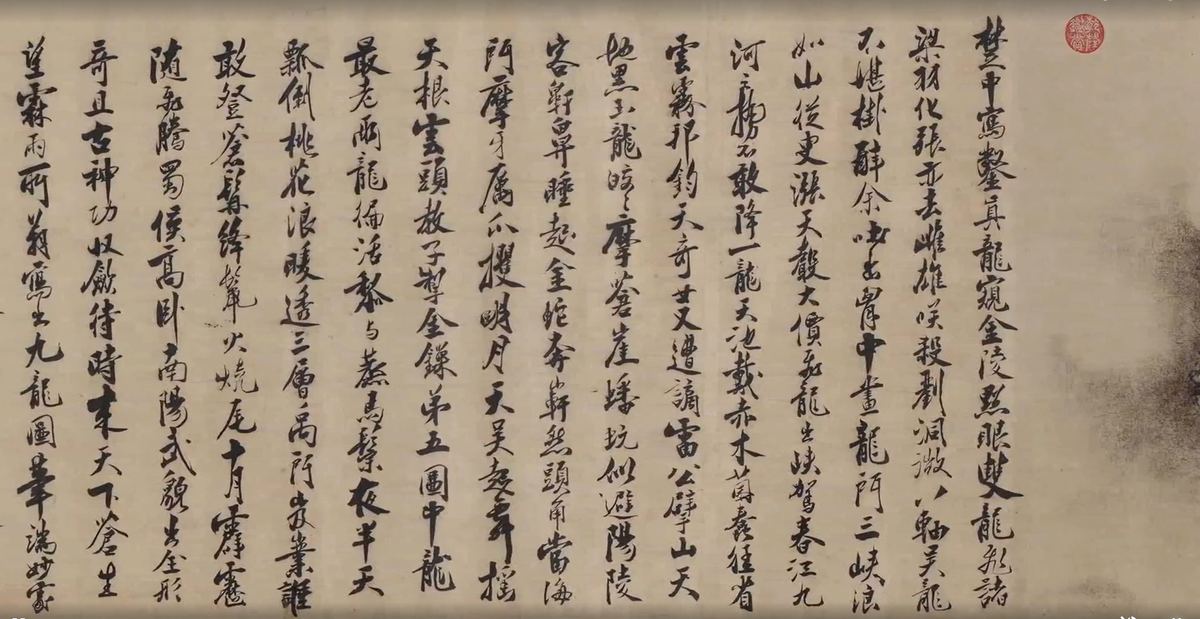 楚中寫鑿真龍窺金陵點眼雙龍飛諸
梁羽化張亦去雌雄笑殺劉洞微八軸吳龍
不堪掛醉余吐出胃中畫龍門三峽浪
如山從吏漲天聲大價飛龍出峽駕春江九
河之捞不敢降一龍天池戴赤木蠢
雲霧邪鈞天奇女又遭謫雷公擘山天
地黑玉龍皎皎摩蒼崖蟠抗似避陽陵
客鼾鼻睡起金蛇奔軒然頭角當海
門摩牙厲爪攫明月天吳起舞搖
天根雲頭教子掣金鎖第五圖中龍
最老兩龍獨活瓢与燕馬鬃夜半天
瓢倒桃花浪暖透三層禹門岌嶪誰
敢登蒼髯絳鬣火燒尾十月霹靂
隨飛騰蜀侯高臥南陽武貌出全形
奇且古神功収斂待時來天下蒼生
望霖雨所翁寫出九龍圖筆端妙處